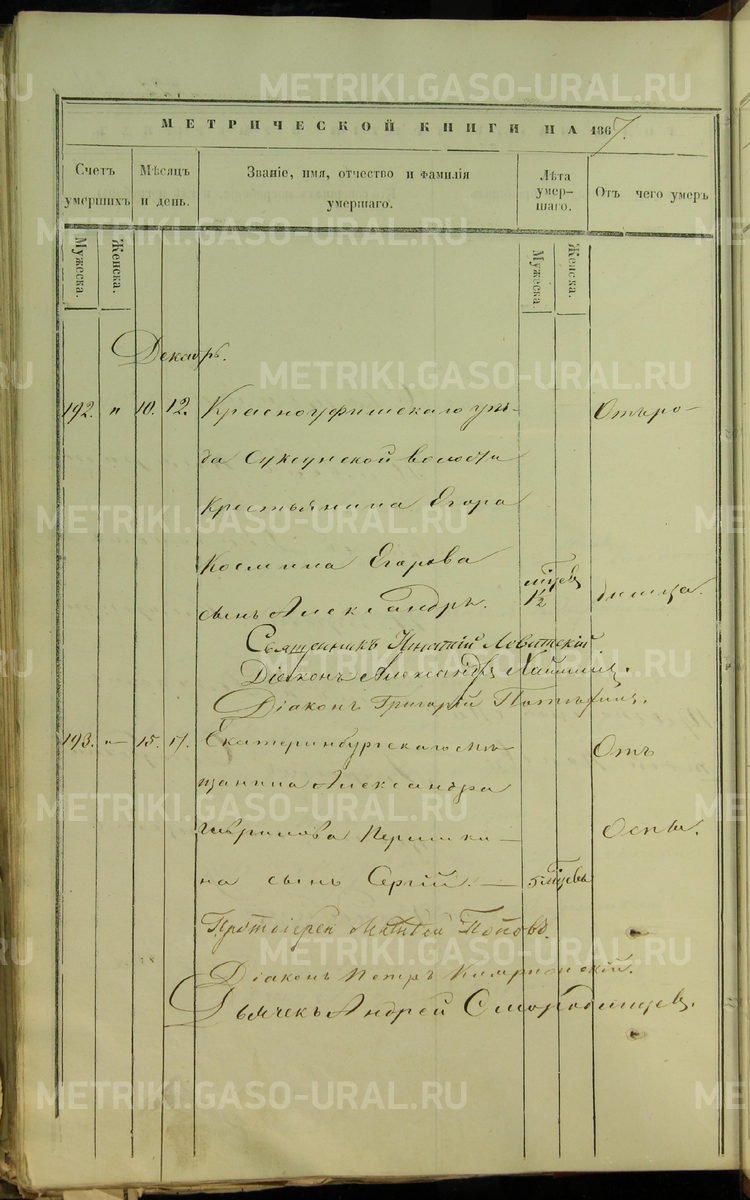 МЕТРИЧЕСКОЙ КНИГИ НА 1867.
Счетъ умершихъ
Мѣсяцъ и день.
Званіе, имя, отчество и фамилія умершаго.
Лѣта умершаго.
Отъ чего умеръ
Мужеска.
Женска.
Мужеска.
Женска.
Декабрь.
192. " 10. 12. Красноуфимскаго уѣз- Отъ ро-
да Суксунской волости
крестьянина Егора
Космина Егорова
сынъ Александръ. 1½ димца.
Священникъ Игнатій
Діаконъ Александръ
Діаконъ Григорій
193. " 15. 17. Екатеринбургскаго мѣ- Отъ
щанина Александра
Гаврилова Першки- Оспы.
на сынъ Сергій. 5 мѣсцевъ
Протоіерей Матвей Поповъ.
Діаконъ Петръ
Дьячекъ Андрей Смородинцевъ.
METRIKI.GASO-URAL.RU